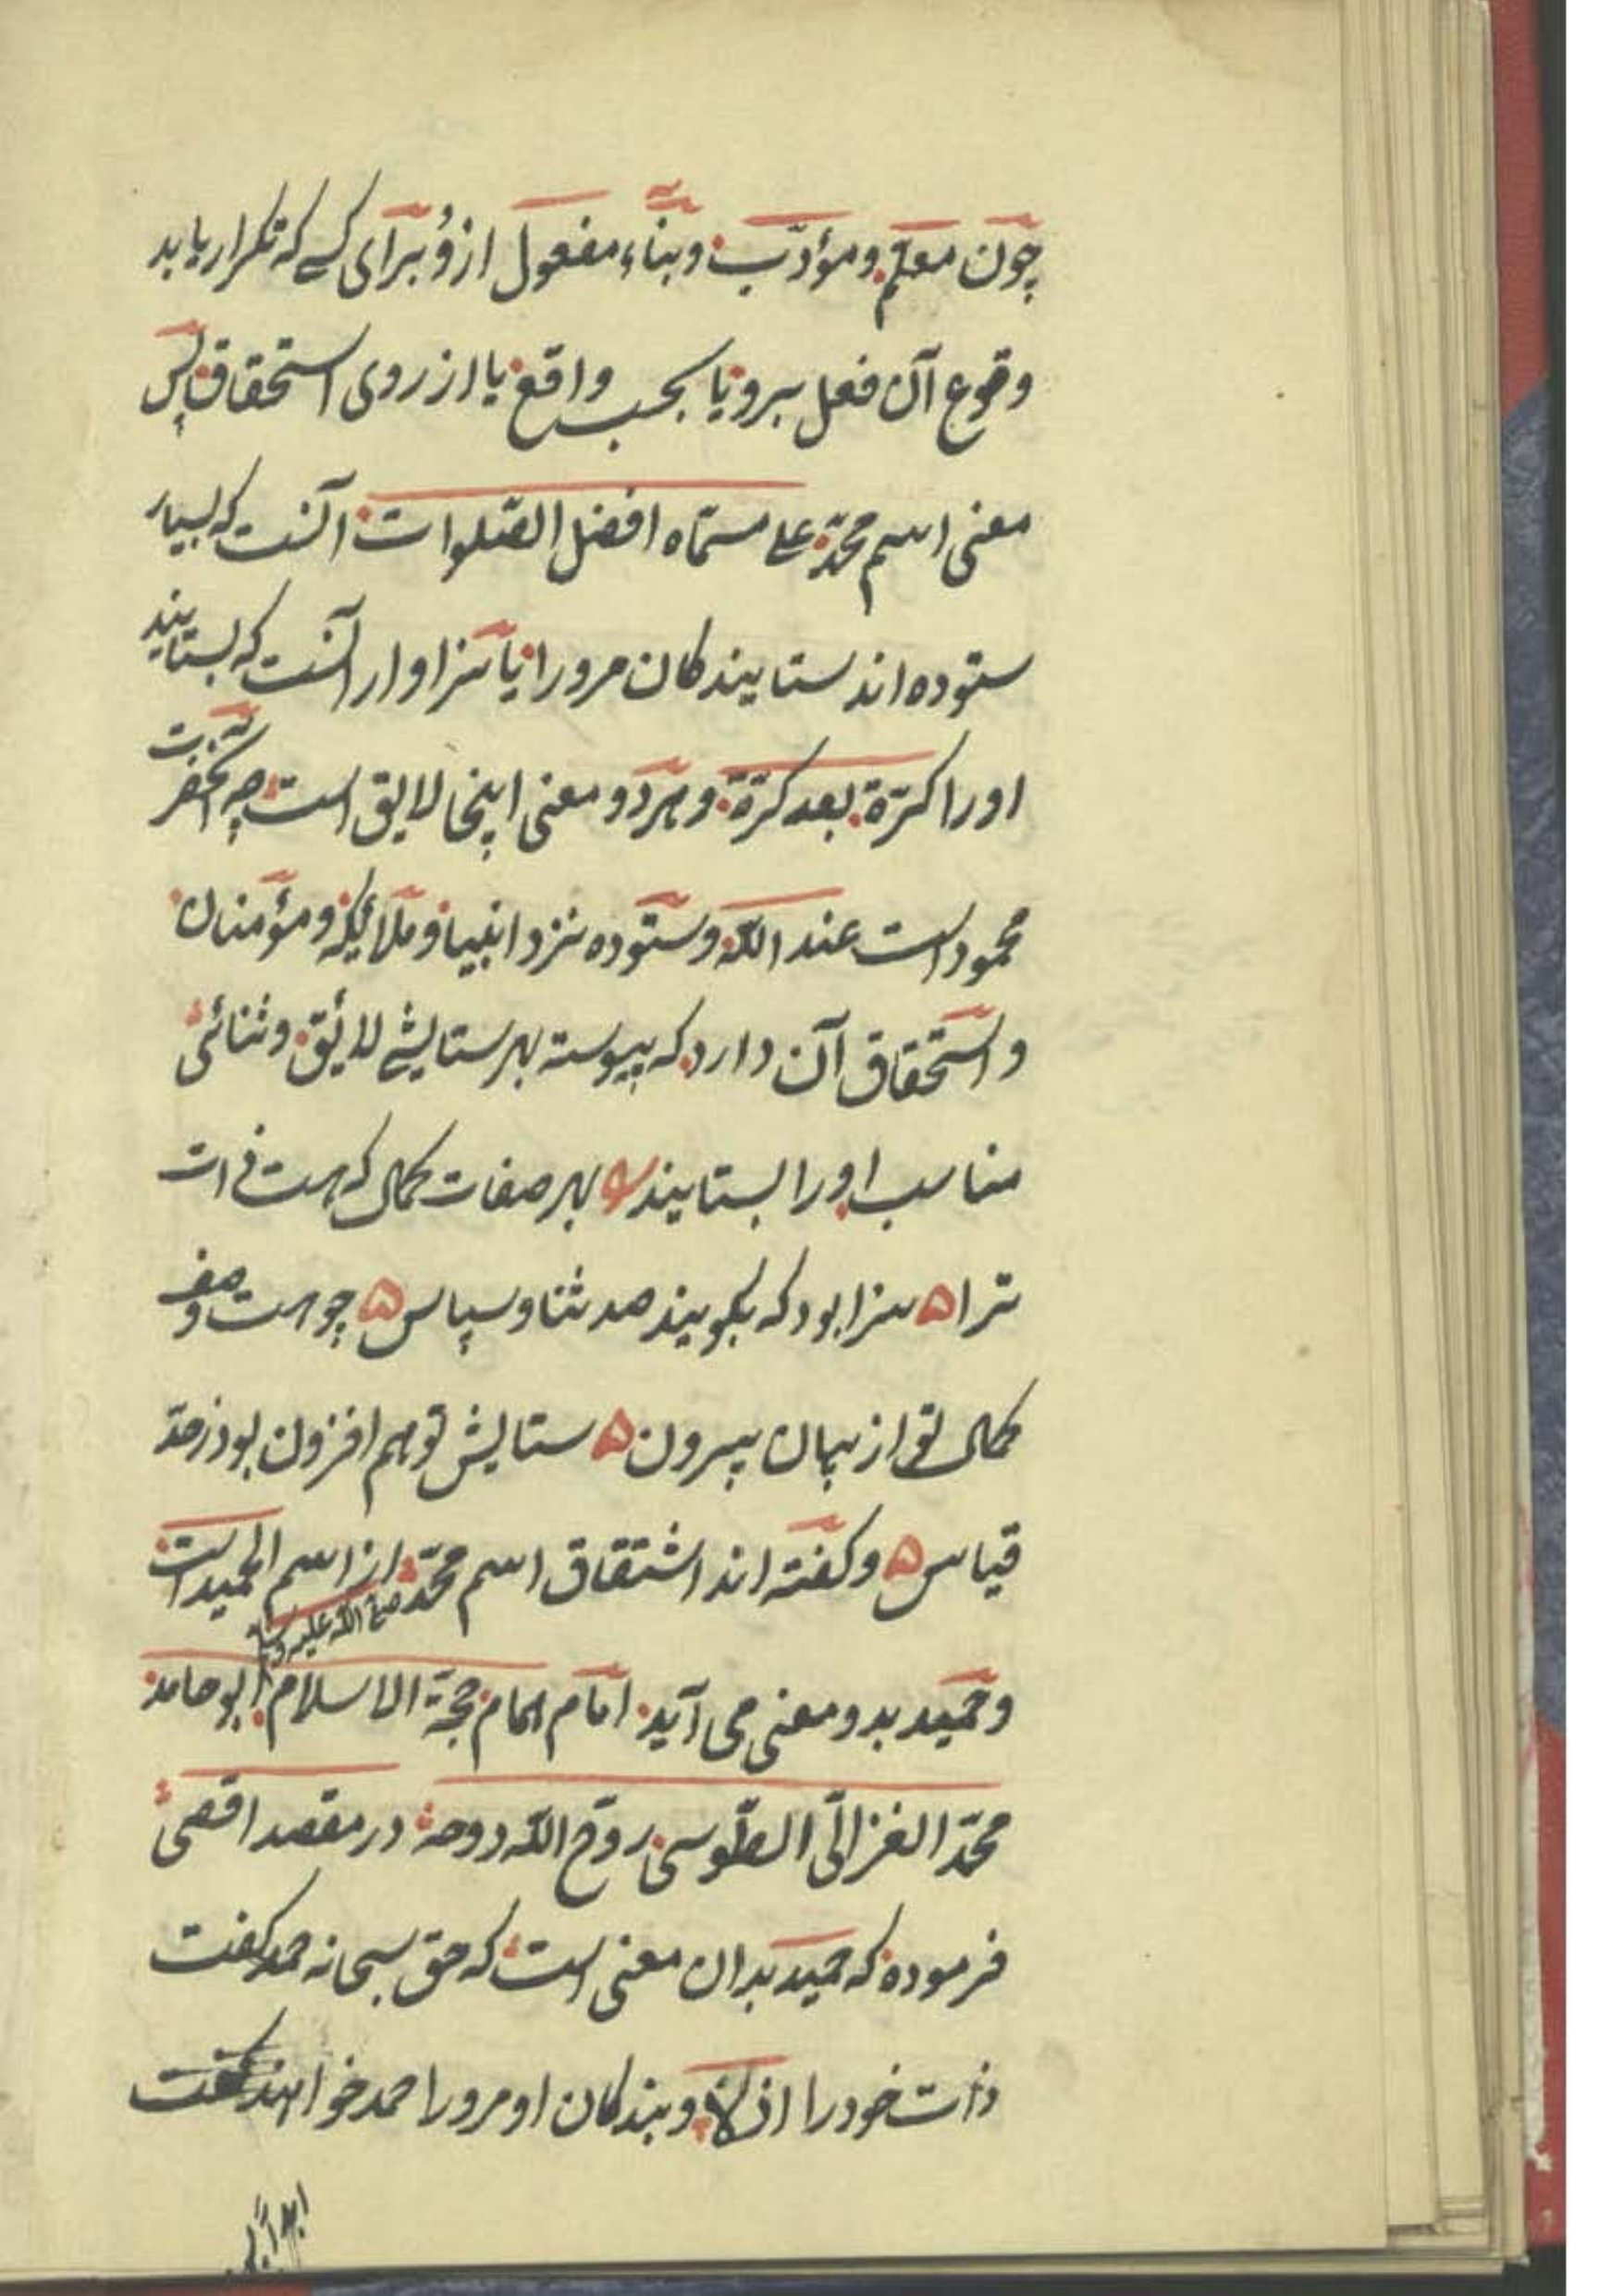 چون معلّم و مؤدّب و بناء مفعول ازو برای کسی که تکرار یابد
وقوع آن فعل برو یا بحسب واقع یا از روی استحقاق پس
معنی اسم محمّد علی مسمّاه افضل الصّلوات آنست که بسیار
ستوده اند ستایندکان مرورا یا سزاوار آنست که بستایند
اورا کرّة بعد کرّة و هر دو معنی اینجا لایق است چه آنحضرت
محمود است عند اللّه و ستوده نزد انبیا و ملائکه و مؤمنان
و استحقاق آن دارد که پیوسته بهر ستایشی لائق و ثنائی
مناسب اورا بستایند بهر صفات کمالی که هست ذات
ترا ه سزا بود که بکویند صد ثنا و سپاس ه چو هست وصف
کمالی تو از بیان بیرون ه ستایش تو هم افزون بود ز حدّ
قیاس ه و کفته اند اشتقاق اسم محمّد صلی اللّه علیه وسلم از اسم الحمید است
و حمید بدو معنی می آید امام همام حجّة الاسلام ابو حامد
محمّد الغزالّی الطّوسی روّح اللّه روحه در مقصد اقصی
فرموده که حمید بدان معنی است که حق سبحانه حمد کفت
ذات خود را ازلا و بندکان او مرورا حمد خواهند کفت
ابدا